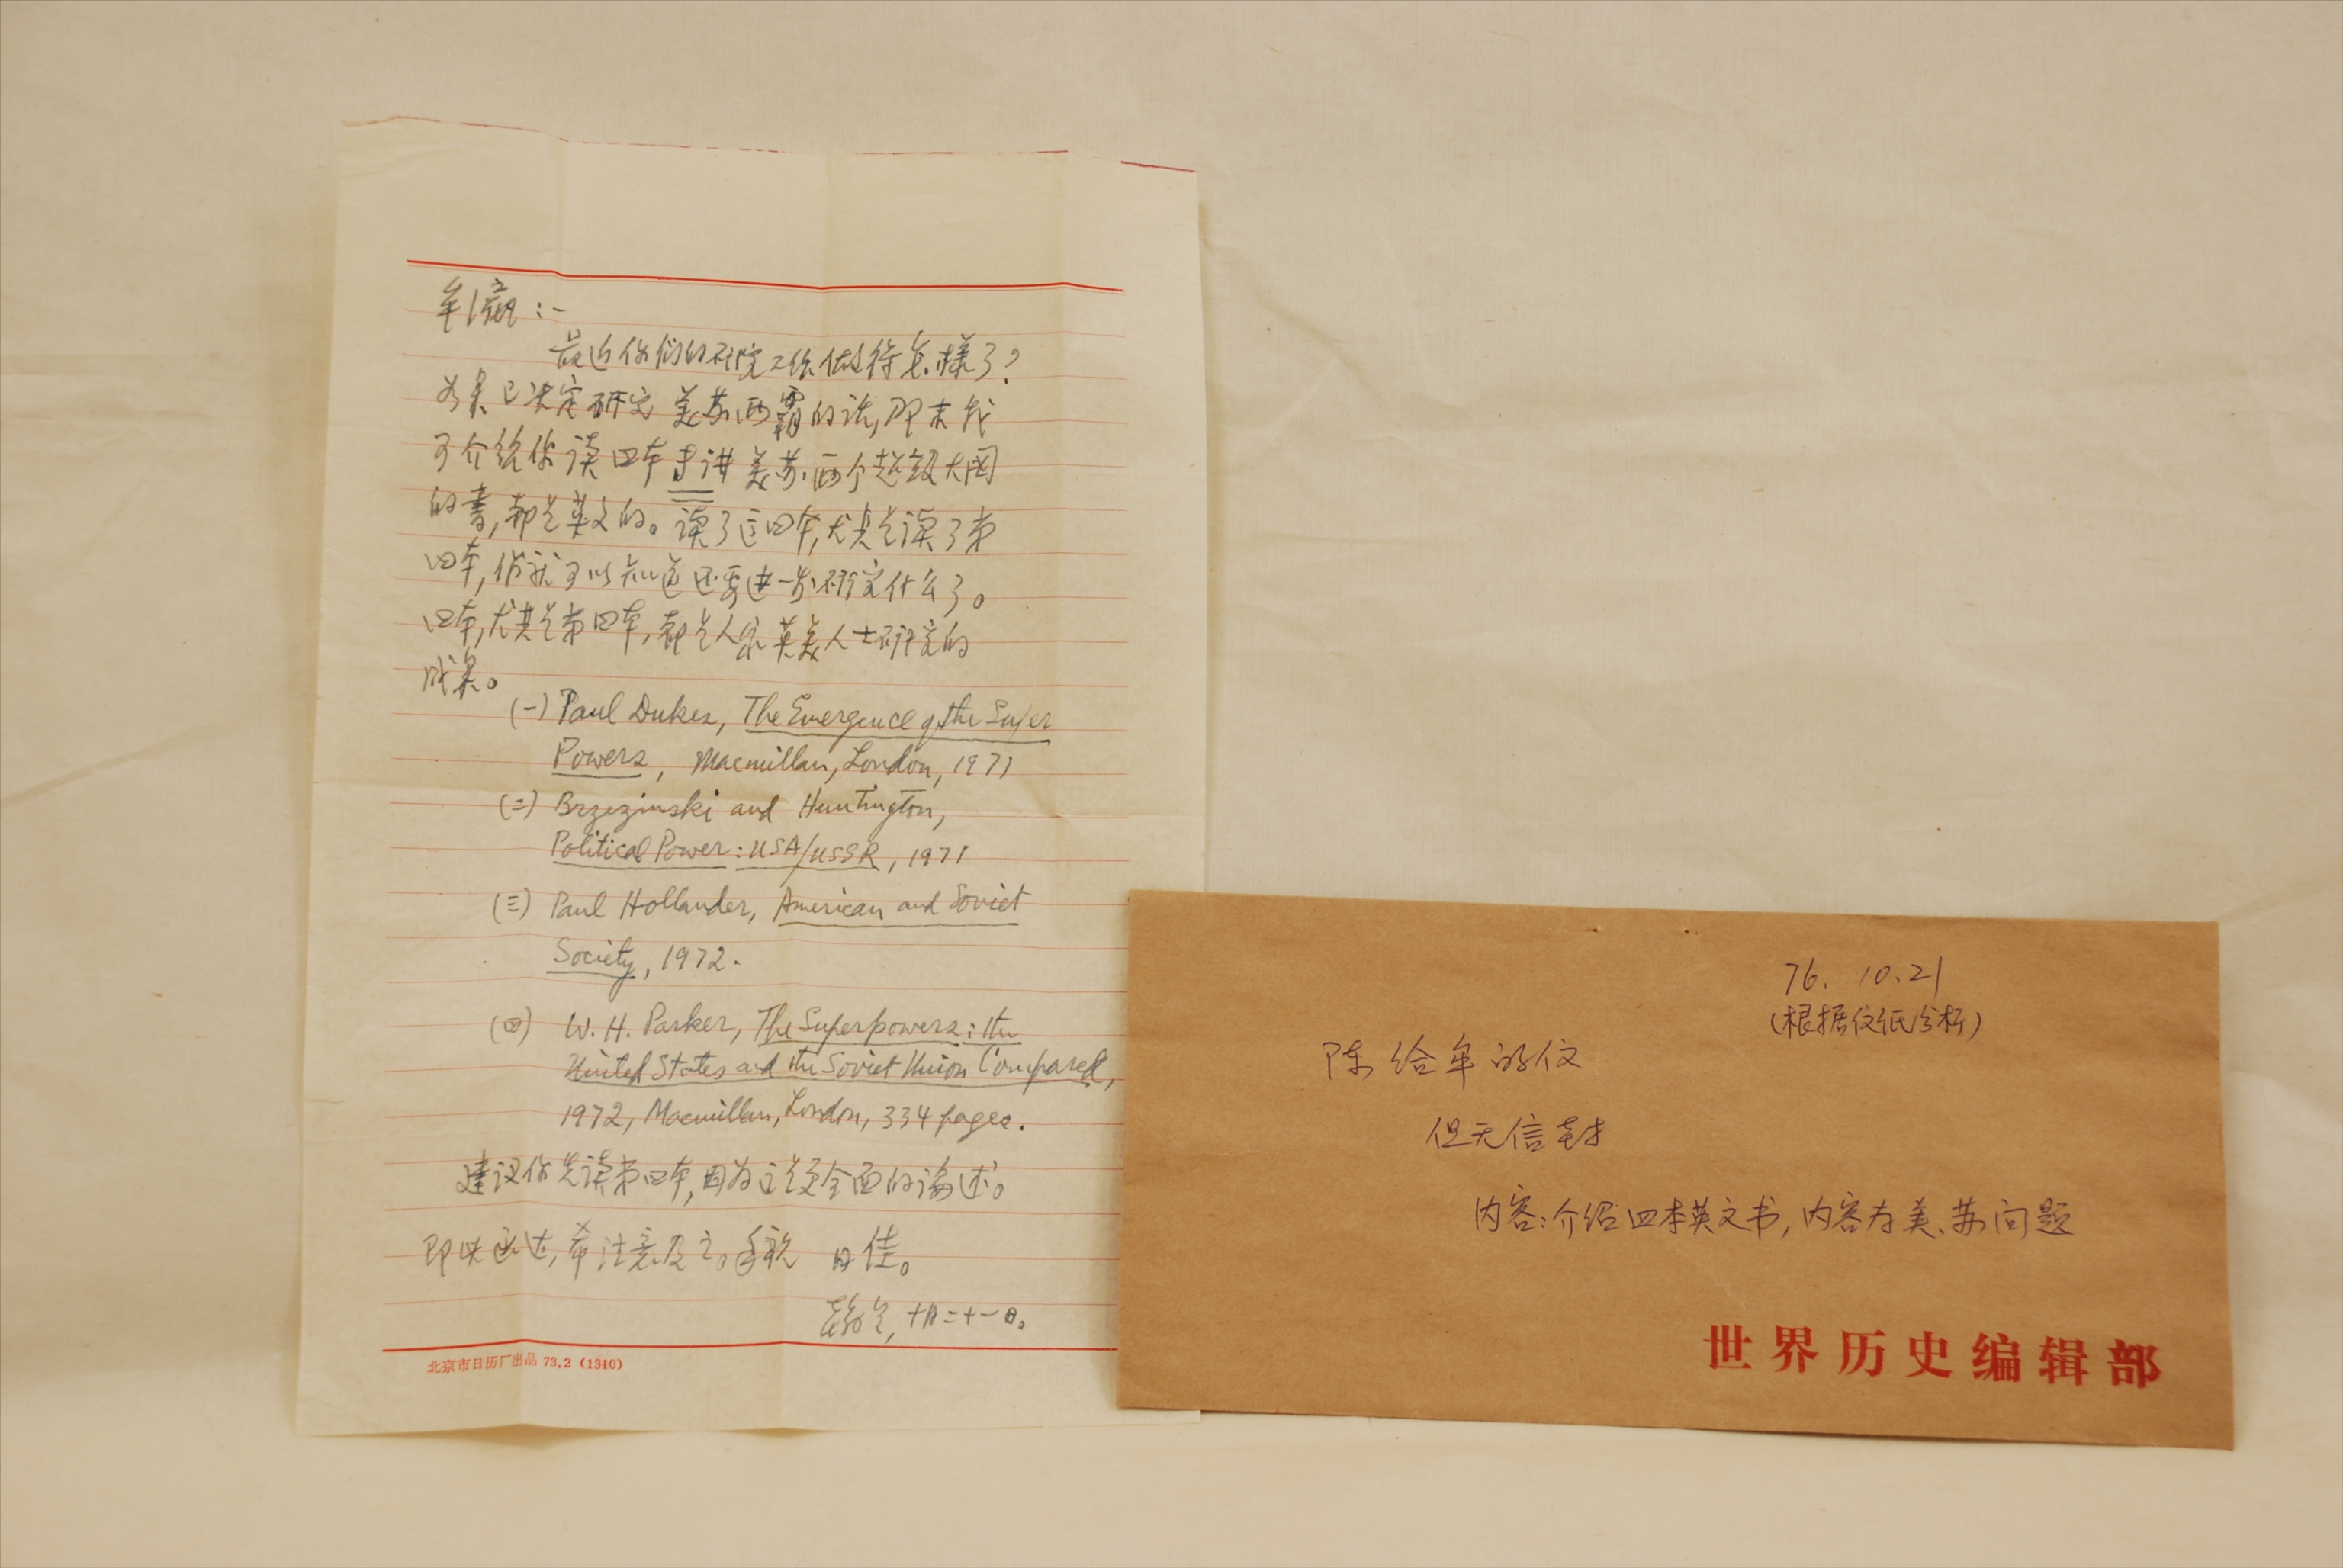 最近你们的研究工作做得怎样了?
如果已决定研究美苏两霸的话,那末我
可介绍你读四本专讲美苏两个超级大国
的书,都是英文的。读了这四本,尤其是读了第
四本,你就可以知道还要进一步研究什么了。
四本,尤其是第四本,都是人家英美人士研究的
成果。
(一) Paul Dukes, The Emergence of the Super
Powers, Macmillan, London, 1971
(二) Brzezinski and Huntington,
Political Power: USA/USSR, 1971
(三) Paul Hollander, American and Soviet
Society, 1972.
(四) W. H. Parker, The Superpowers: the
United States and the Soviet Union Compared,
1972, Macmillan, London, 334 pages.
建议你先读第四本,因为这是更全面的论述。
即此函达,希注意及之。手祝 日佳。
十月二十一日。
北京市日历厂出品 73.2 (1310)
76. 10.21
(根据信纸分析)
陈给牟的信
但无信封
内容:介绍四本英文书,内容为美、苏问题
世界历史编辑部